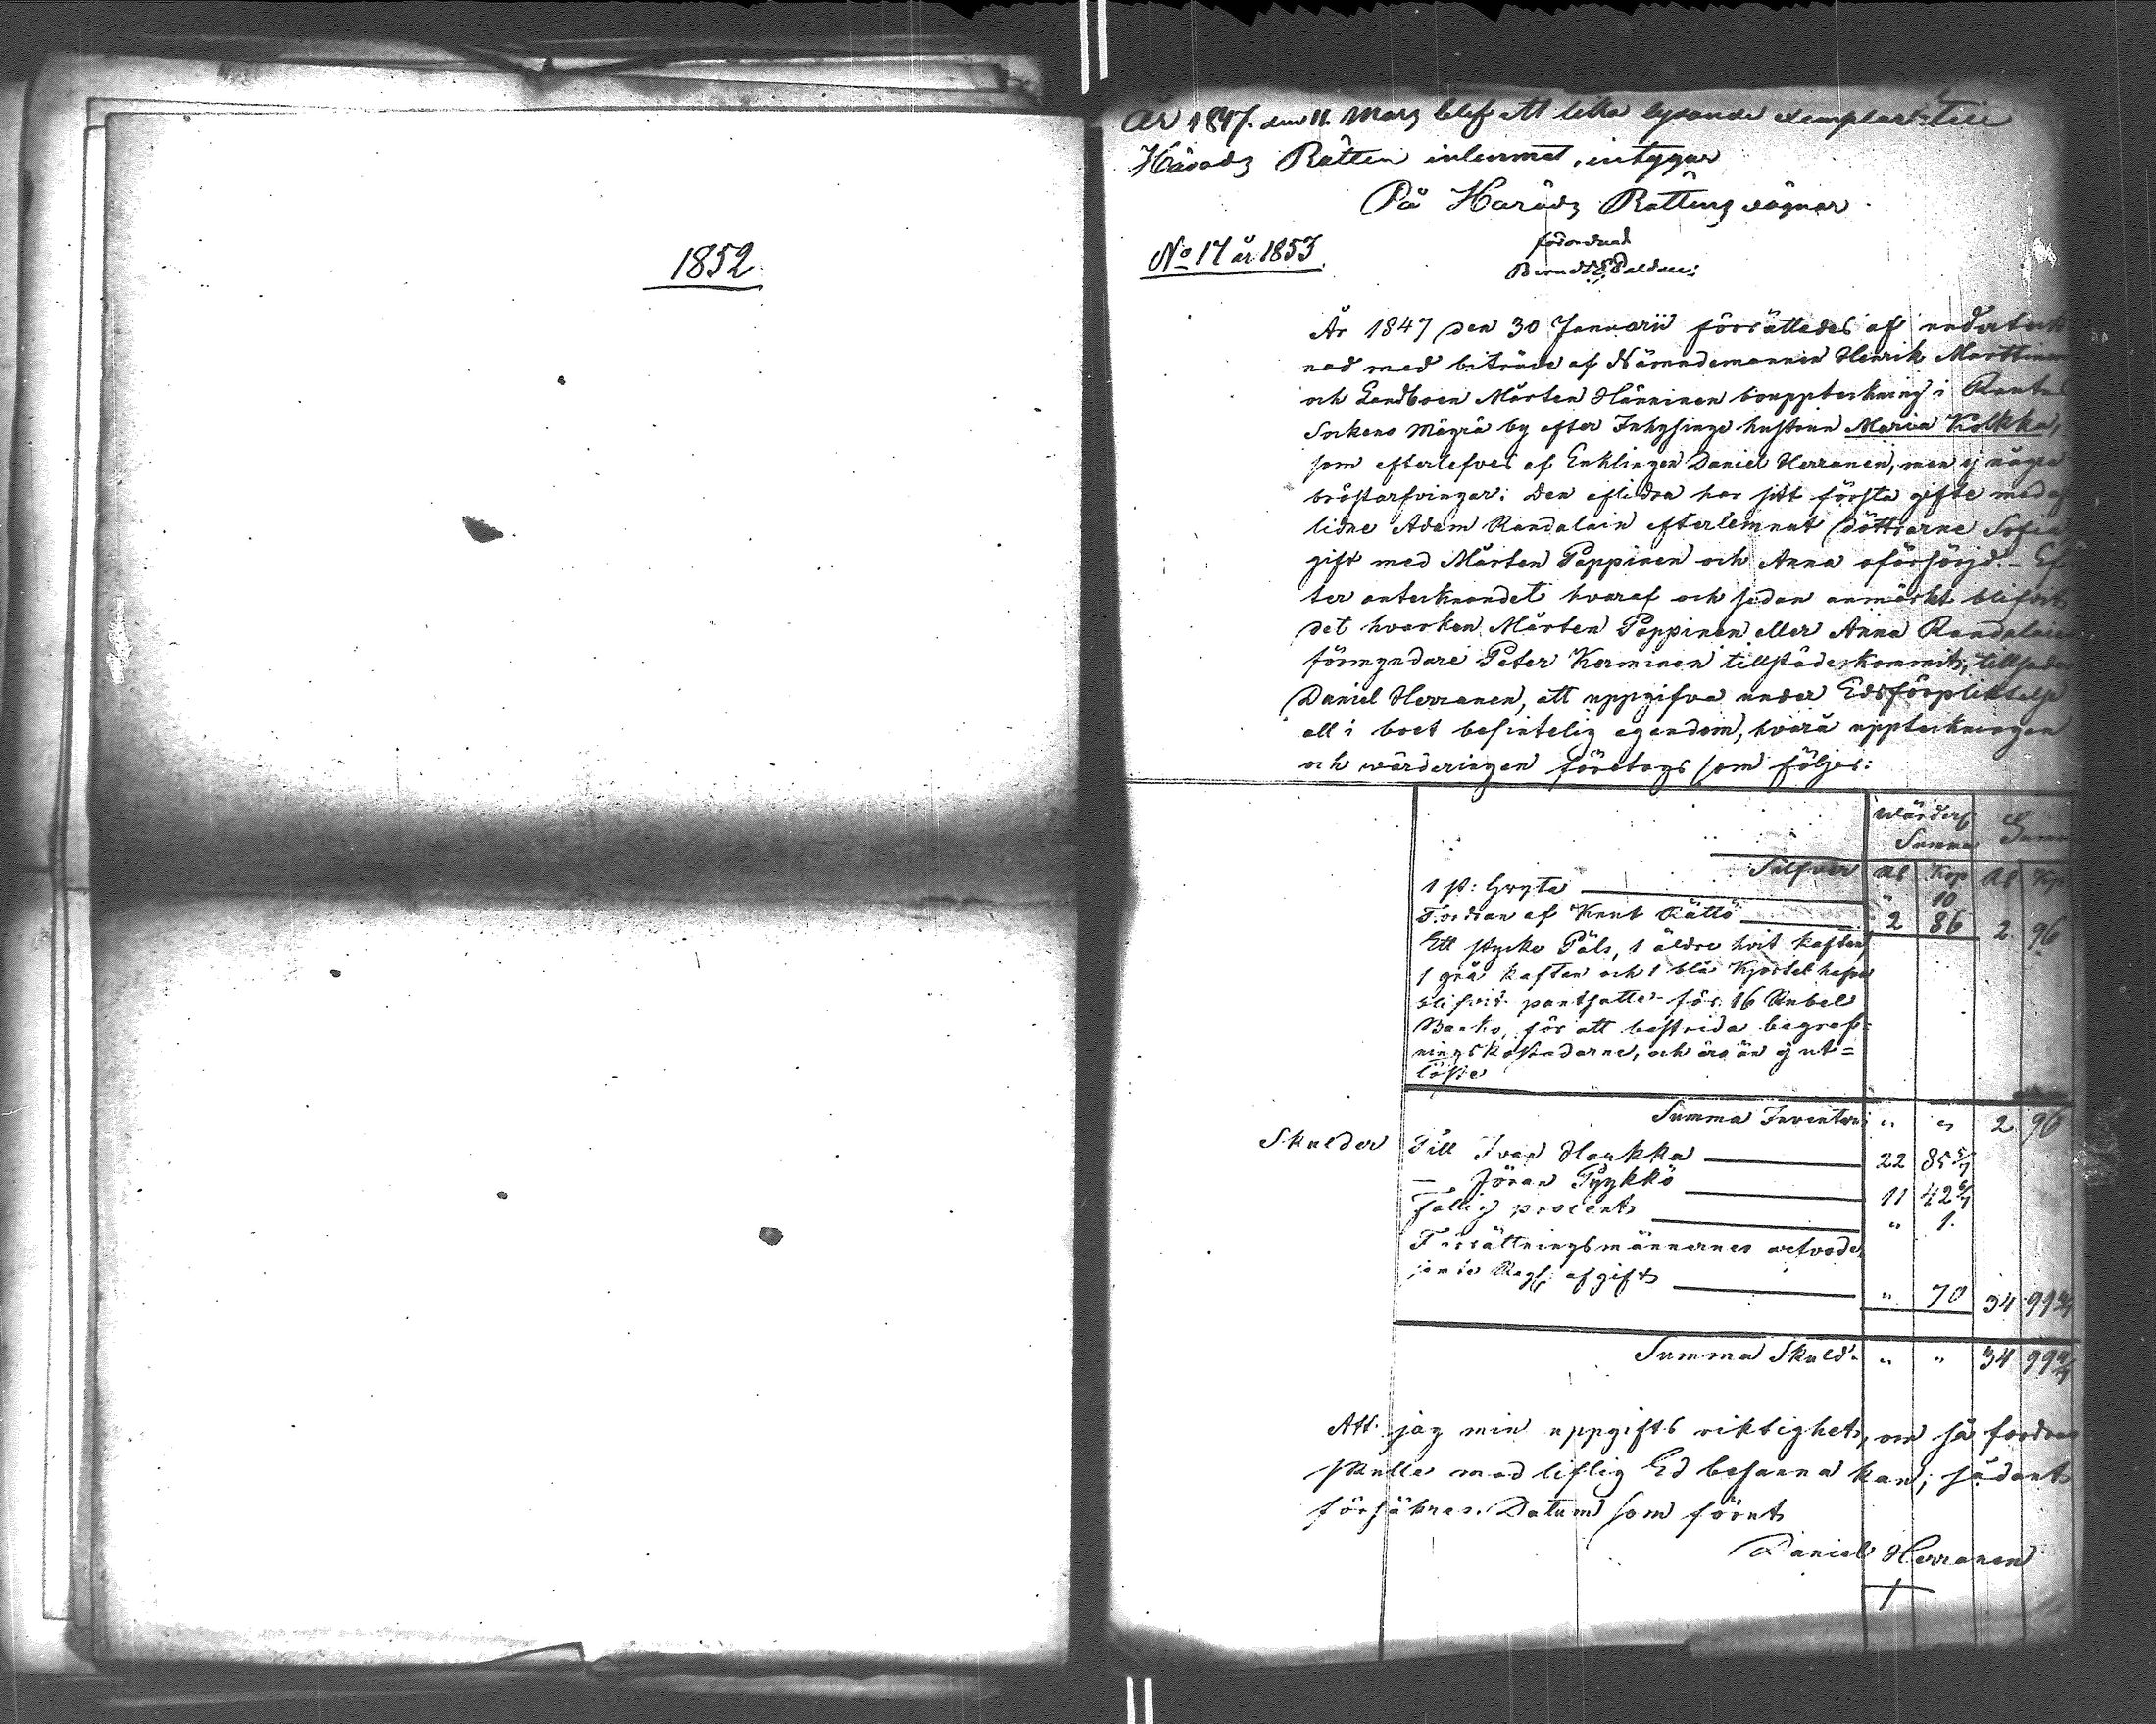 1852
År 1847. den 11. Mars blef ett lika lydande exemplar till
Härads Rätten inlemnat, intygar
På Härads Rättens vägnar
förordnad
No 17 år 1853
Berndt
År 1847 den 30 Januarii förrättades af underteck
nad med biträde af Nämndemannen Henrik Marttinen
och Landboen Mårten Hänninen bouppteckning i Rautus
Sockens Mägrä by efter Inhysinge hustrun Maria Kolkka,
som efterlefves af Enklingen Daniel Herranen, men ej några
bröstarfvingar; Den aflidna har sitt första gifte med af
lidne Adam Randalain efterlemnat döttrarne Sofia
gift med Mårten Pappinen och Anna oförsörjd. – Ef
ter anteknandet hvaraf och sedan anmärkt blifvit
det hvarken Mårten Pappinen eller Anna Randalain
förmyndare Peter Kerminen tillstädeskommit, tillsades
Daniel Herranen, att uppgifva under Edsförpliktelse
all i boet befintelig egendom, hvarå uppteckningen
och wärderingen företogs som följer:
Wärderss
Summa Summa
Silfver Rb Kop Rb Kop
1 st: Gryta " 10
Fordran af Knut Rättö 2 86 2 96
Ett stycke Päls, 1 äldre hvit kaftan,
1 grå kaftan och 1 blå Kjortel hafva
blifvit pantsatte för 16 Rubel
Banko, för att bestrida begraf=
ningskostnadarne, och äro än ej ut=
löste
Summa Inventarii " " 2 96
Skulder Till Ivan Haukka 22 85 5/7
— Jöran Pyykkö 11 42 6/7
Fattig procent " 1.
Förrättningsmännernes arfvode,
jemte afgift " 70 34 99 4/7
Summa Skuld " " 34 99 4/7
Att jag min uppgifts riktighet, om så fordras
skulle med liflig Ed besanna kan; sådant
försäkras. Datum som förut
Daniel Herranen